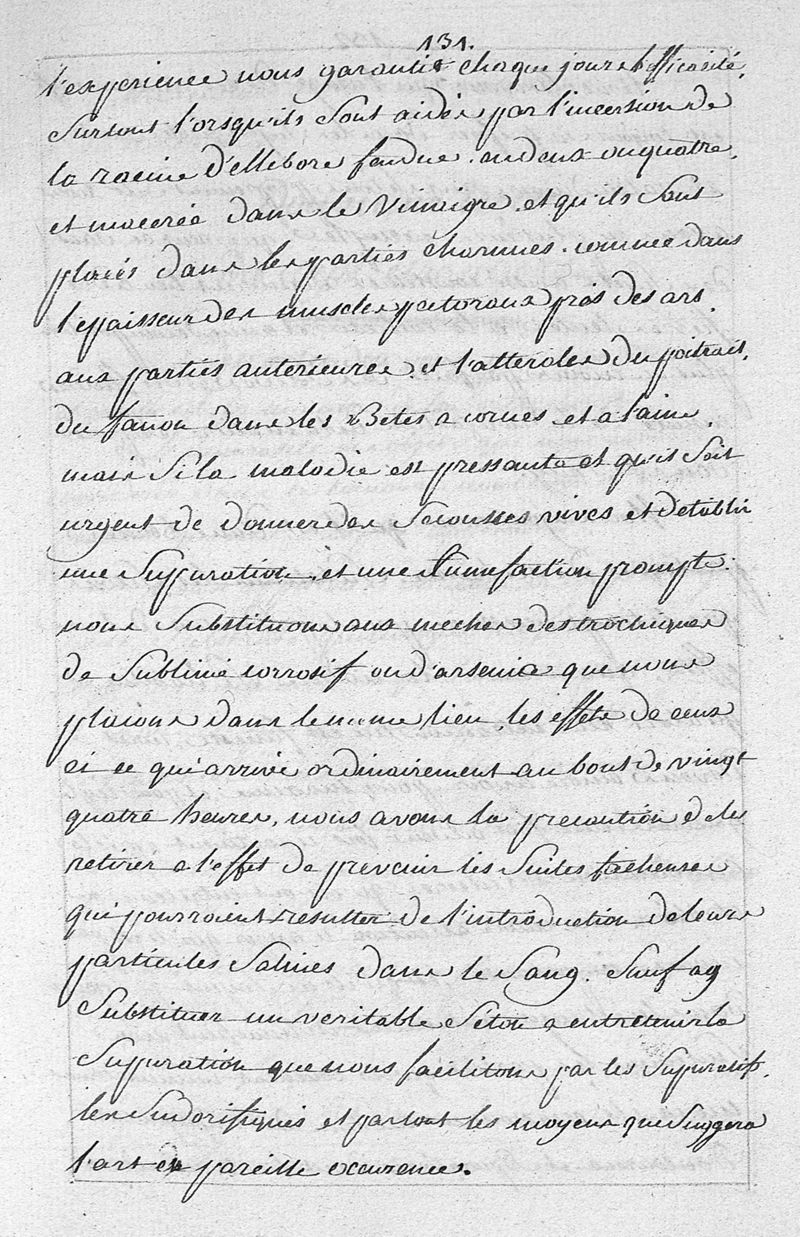 131.
l'experience nous garantit chaque jour l'efficasité,
surtout l'orsqu'ils sont aidés par l'incersion de
la racine d'Ellebore fendue en deux ou quatre,
et macerée dans le Vinaigre et qu'ils sont
placés dans les parties charnues comme dans
l'epaisseur des muscles pectoraux près des ars
aux parties anterieures et l'atterales du poitrail,
du fanon dans les Betes a cornes et a l'aine,
mais si la maladie est pressante et qu'is soit
urgent de donner des secousses vives et d'etablir
une suppuration et une tumefaction prompte
nous substituons aux meches des trochiques
de sublimé corrosif ou d'arsenic que nous
plaçons dans le meme lieu, les effets de ceux
ci ce qui arrive ordinairement au bout de vingt
quatre heures, nous avons la precaution de les
retirer a l'effet de prevenir les suites facheuses
qui pourroient resulter de l'introduction de leurs
particules salines dans le sang. Sauf a y
substituer un veritable séton a entretenir la
suppuration que nous facilitons par les suppuratifs,
les sudorifiques et par tout les moyens que suggera
l'art en pareille occurence.